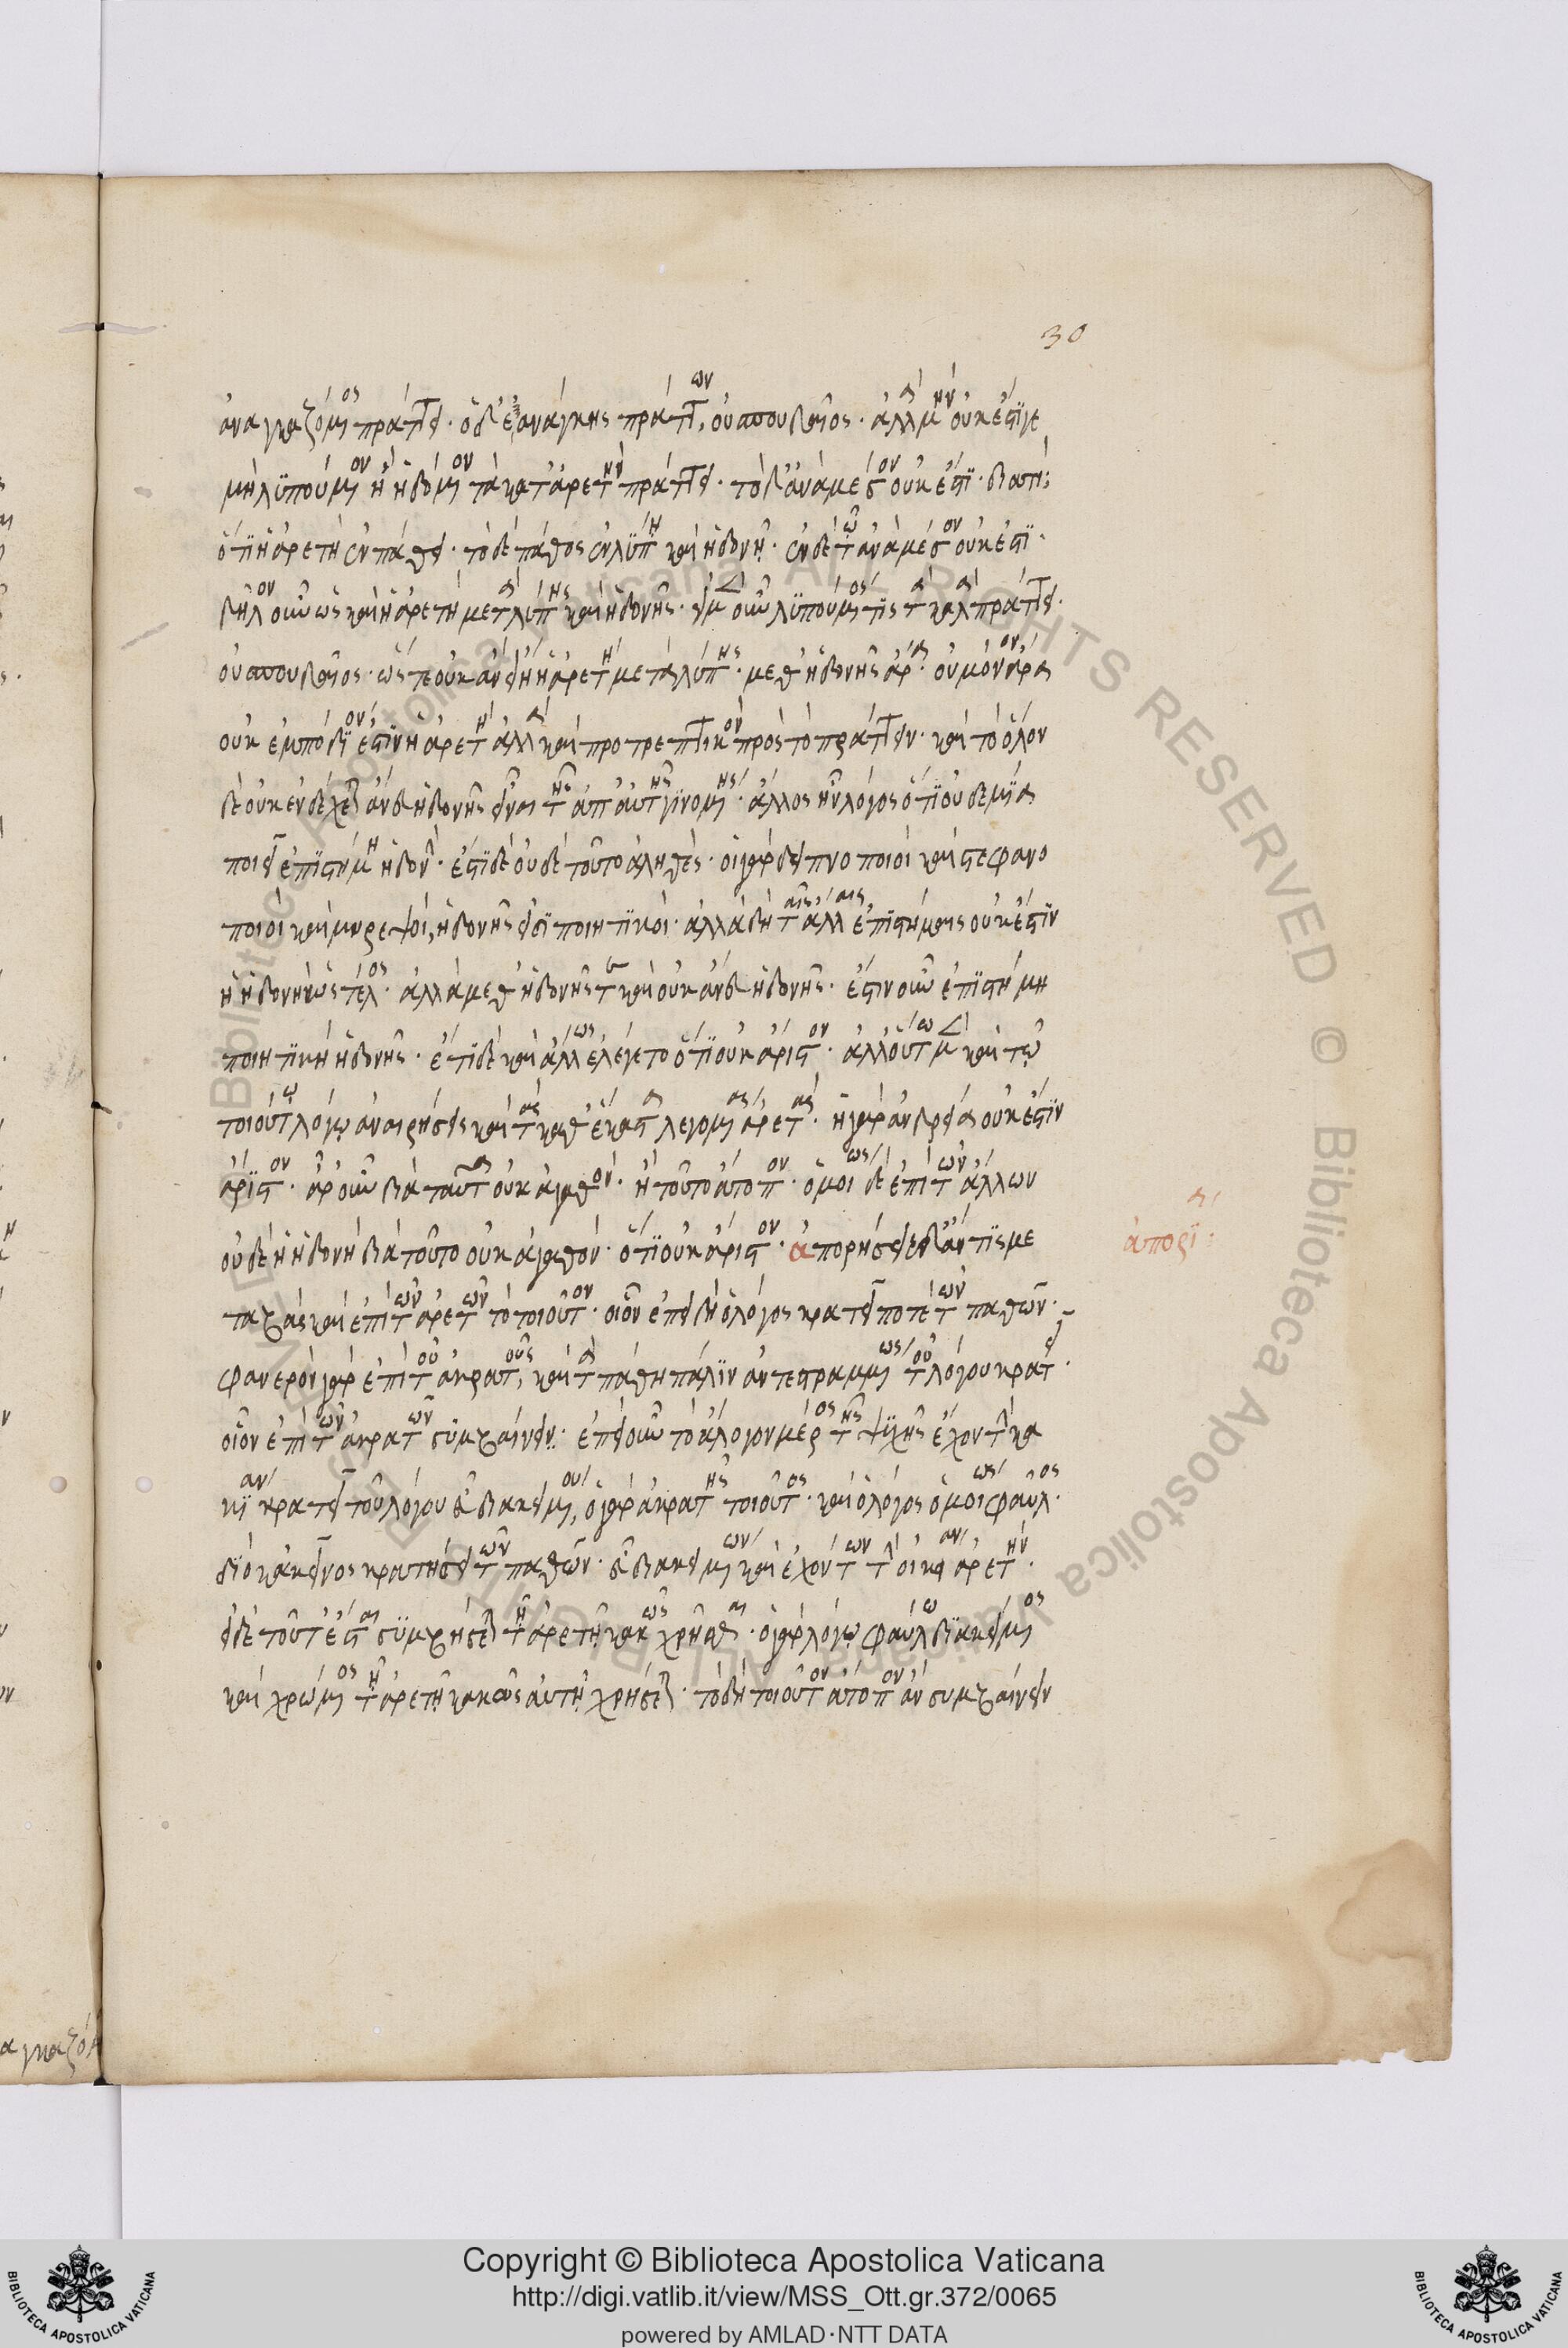 30
ἀναγκαζόμενος πράττει· ὁ δ' ἐξ ἀνάγκης πράττων, οὐ σπουδαῖος· ἀλλὰ μὴν οὐκ ἔστι γε
μὴ λυπούμενον ἢ ἡδόμενον τὰ κατ' ἀρετὴν πράττειν· τὸ δ' ἀνάμεσον οὐκ ἔστι· διατί;
ὅτι ἡ ἀρετὴ ἐν πάθει· τὸ δὲ πάθος ἐν λύπῃ καὶ ἡδονῇ· ἐν δὲ τῷ ἀνάμεσον οὐκ ἔστι·
δῆλον οὖν ὡς καὶ ἡ ἀρετὴ μετὰ λύπης καὶ ἡδονῆς· εἰ μὲν οὖν λυπούμενός τις τὰ καλὰ πράττει·
οὐ σπουδαῖος· ὥστε οὐκ ἂν εἴη ἡ ἀρετὴ μετὰ λύπης· μεθ' ἡδονῆς ἄρα· οὐ μόνον ἄρα
οὐκ ἐμπόδιόν ἐστιν ἡ ἀρετὴ ἀλλὰ καὶ προτρεπτικὸν πρὸς τὸ πράττειν· καὶ τὸ ὅλον
δὲ οὐκ ἐνδέχεται ἄνευ ἡδονῆς εἶναι τῆς ἀπ' αὐτῆς γινομένης· ἄλλος ἦν λόγος ὅτι οὐδεμία
ποιεῖ ἐπιστήμη ἡδονήν· ἔστι δὲ οὐδὲ τοῦτο ἀληθές· οἱ γὰρ δειπνοποιοὶ καὶ στεφανο
ποιοὶ καὶ μυρεψοὶ, ἡδονῆς εἰσι ποιητικοί· ἀλλὰ δὴ ταῖς ἄλλαις ἐπιστήμαις οὐκ ἔστιν
ἡ ἡδονὴ ὡς τέλος· ἀλλὰ μεθ' ἡδονῆς γε καὶ οὐκ ἄνευ ἡδονῆς· ἔστιν οὖν ἐπιστήμη
ποιητικὴ ἡδονῆς· ἔτι δὲ καὶ ἄλλως ἐλέγετο ὅτι οὐκ ἄριστον· ἀλλ' οὕτω μὲν καὶ τῷ
τοιούτῳ λόγῳ ἀναιρήσεις καὶ τὰς καθ' ἕκαστα λεγομένας ἀρετάς· ἡ γὰρ ἀνδρεία οὐκ ἔστιν
ἄριστον· ἆρ' οὖν διὰ ταῦτα οὐκ ἀγαθόν· ἢ τοῦτο ἄτοπον· ὁμοίως δὲ ἐπὶ τῶν ἄλλων
οὐδὲ ἡ ἡδονὴ διὰ τοῦτο οὐκ ἀγαθόν· ὅτι οὐκ ἄριστον· ἀπορήσειε δ' ἄν τις με
ἀπορία:
ταβὰς καὶ ἐπὶ τῶν ἀρετῶν τὸ τοιοῦτον· οἷον ἐπεὶ δὴ ὁ λόγος κρατεῖ ποτε τῶν παθῶν·
φαμὲν γὰρ ἐπὶ τοῦ ἀκρατοῦς, καὶ τὰ πάθη πάλιν ἀντεστραμμένως τοῦ λόγου κρατεῖ·
οἷον ἐπὶ τῶν ἀκρατῶν συμβαίνειν· ἐπεὶ οὖν τὸ ἄλογον μέρος τῆς ψυχῆς ἔχον τὴν κα
κίαν κρατεῖ τοῦ λόγου εὖ διακειμένου, ὁ γὰρ ἀκρατὴς τοιοῦτος· καὶ ὁ λόγος ὁμοίως φαῦλος·
διὸ κἀκεῖνος κρατήσει τῶν παθῶν· εὖ διακειμένων καὶ ἐχόντων τὴν οἰκείαν ἀρετήν·
εἰ δὲ τοῦτ' ἔσται συμβήσεται τῇ ἀρετῇ κακῶς χρῆσθαι· ὁ γὰρ λόγῳ φαύλῳ διακείμενος
καὶ χρώμενος τῇ ἀρετῇ κακῶς αὐτῇ χρήσεται· τὸ δὴ τοιοῦτον ἄτοπον ἂν συμβαίνειν
αγκαζό
Copyright © Biblioteca Apostolica Vaticana
http://digi.vatlib.it/view/MSS_Ott.gr.372/0065
powered by AMLAD·NTT DATA